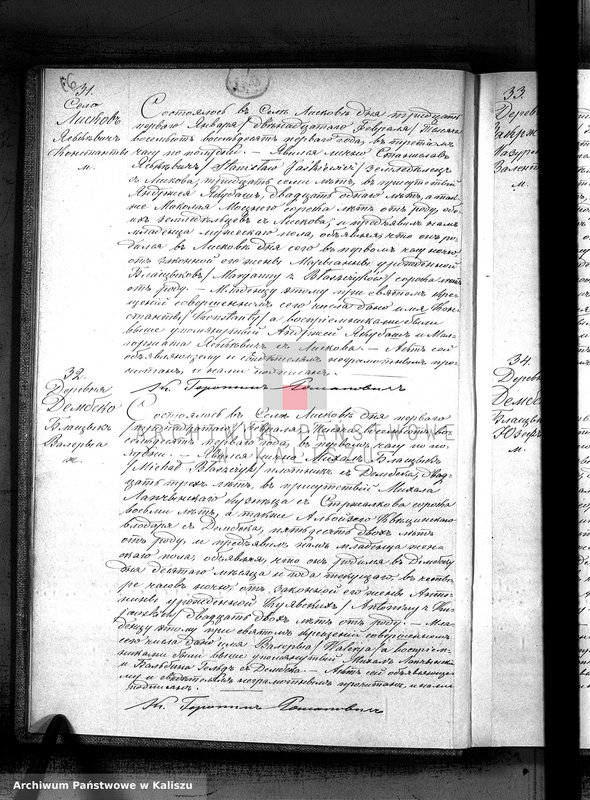 66
31.
Село
Лисков
Яськевич
Константы
м.
Состоялось въ Селѣ Лисковъ дня тридцать
перваго Января / двѣнадцатаго Февраля / тысяча
восемьсотъ восемьдесятъ перваго года, въ третьемъ
часу по полудни. — Явился лично Станиславъ
Яськевичъ / Stanisław Jaśkiewicz / земледѣлецъ
съ Лискова, тридцать семи лѣтъ, въ присутствіи
Андржея Якубашъ, двадцать одного лѣтъ, а так-
же Миколая сорока лѣтъ отъ роду, обо-
ихъ земледѣльцевъ съ Лискова, и предъявилъ намъ
младенца мужескаго пола, объявляя, что онъ ро-
дился въ Лисковѣ дня сего въ первомъ часу ночью,
отъ законной его жены Марыанны урожденной
сорока лѣтъ
отъ роду. — Младенцу этому при святомъ кре-
щеніи совершенномъ сего числа дано имя Кон-
станты / Konstanty / а воспріемниками были
выше упомянутый Андржей Якубашъ и Мал-
горжата Яськевичъ съ Лискова. — Актъ сей
объявляющему и свидѣтелямъ неграмотнымъ про-
читанъ, и нами подписанъ.
Кс. Геронимъ Романовичъ
32.
Деревня
Дембско
Блащыкъ
Валерыа
ж.
Состоялось въ Селѣ Лисковъ дня перваго
/ тринадцатаго / Февраля тысяча восемьсотъ во-
семьдесятъ перваго года, въ первомъ часу по по-
лудни. — Явился лично Михалъ Блащыкъ
/ Michał Błaszczyk / плотникъ съ Дембска, двад-
цать трехъ лѣтъ, въ присутствіи Михала
кузнеца съ Стржалкова сорока
восьми лѣтъ, а также
влодаря съ Дембска, пятьдесятъ двохъ лѣтъ
отъ роду, и предъявилъ намъ младенца жен-
скаго пола, объявляя, что онъ родился въ Дембску
дня десятаго мѣсяца и года текущаго, въ четве-
ре часовъ ночью, отъ законной его жены Анто-
нины урожденной Куявскихъ / Antoniny z Ku-
jawskich / двадцать двохъ лѣтъ отъ роду. — Мла-
денцу этому при святомъ крещеніи совершенномъ
сего числа дано имя Валерыа / Walerya / а воспріем-
никами были выше упомянутый Михалъ
и съ Дембска. — Актъ сей объявляюще-
му и свидѣтелямъ неграмотнымъ прочитанъ, и нами
подписанъ.
Кс. Геронимъ Романовичъ
33.
34.
Archiwum Państwowe w Kaliszu